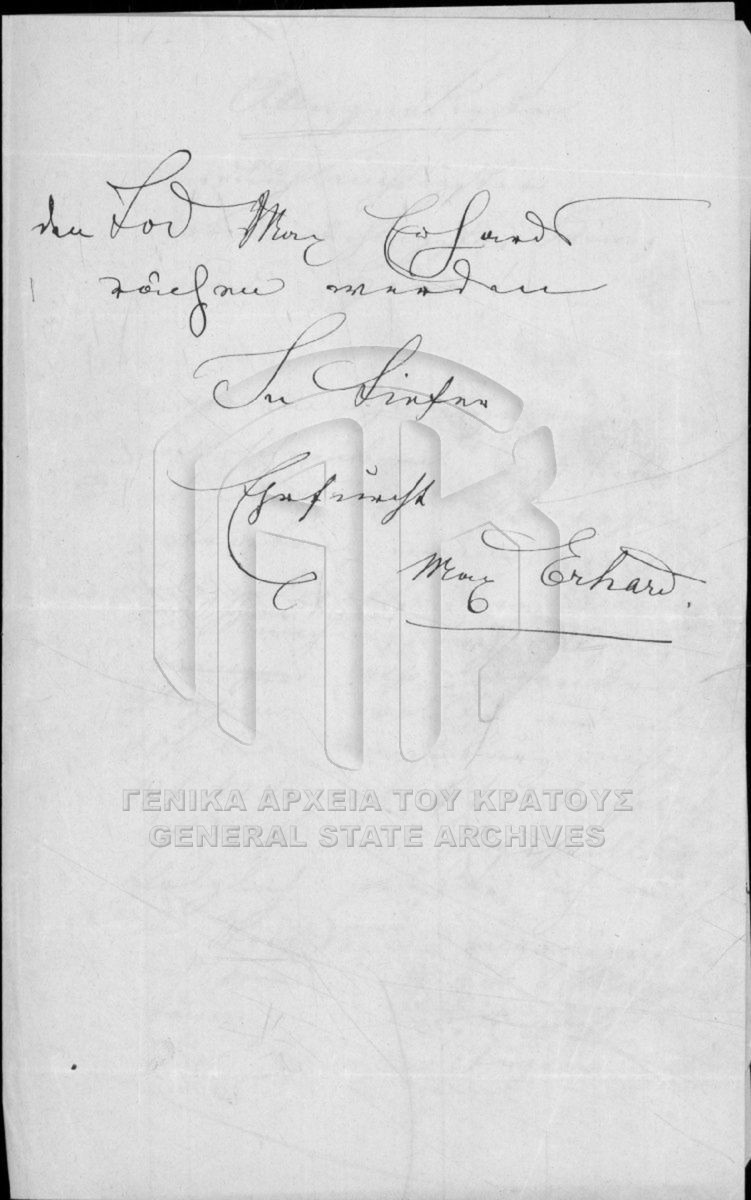 den Tod Max Erhards
rächen werden
In tiefer
Ehrfurcht
Max Erhard.
ΓΕΝΙΚΑ ΑΡΧΕΙΑ ΤΟΥ ΚΡΑΤΟΥΣ
GENERAL STATE ARCHIVES